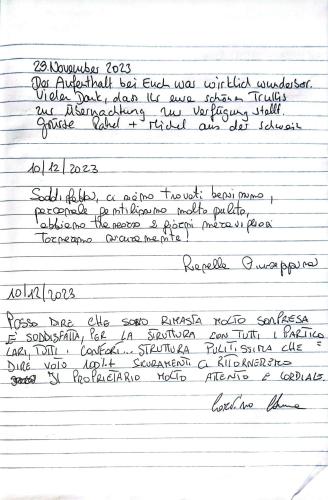 29. November 2023
Der Aufenthalt bei Euch war wirklich wunderbar.
Vielen Dank, dass Ihr eure schönen Trullis
zur Übernachtung zur Verfügung stellt.
Grüsse + Michel aus der Schweiz
10/12/2023
Soddisfatti, ci siamo trovati benissimo,
personale gentilissimo molto pulito,
abbiamo trascorso 2 giorni meravigliosi
Torneremo sicuramente!
10/12/2023
POSSO DIRE CHE SONO RIMASTA MOLTO SORPRESA
E SODDISFATTA, PER LA STRUTTURA CON TUTTI I PARTICO
LARI, TUTTI I CONFORT... STRUTTURA PULITISSIMA CHE
DIRE VOTO 100++ SICURAMENTE CI RITORNEREMO
IL PROPRIETARIO MOLTO ATTENTO E CORDIALE.